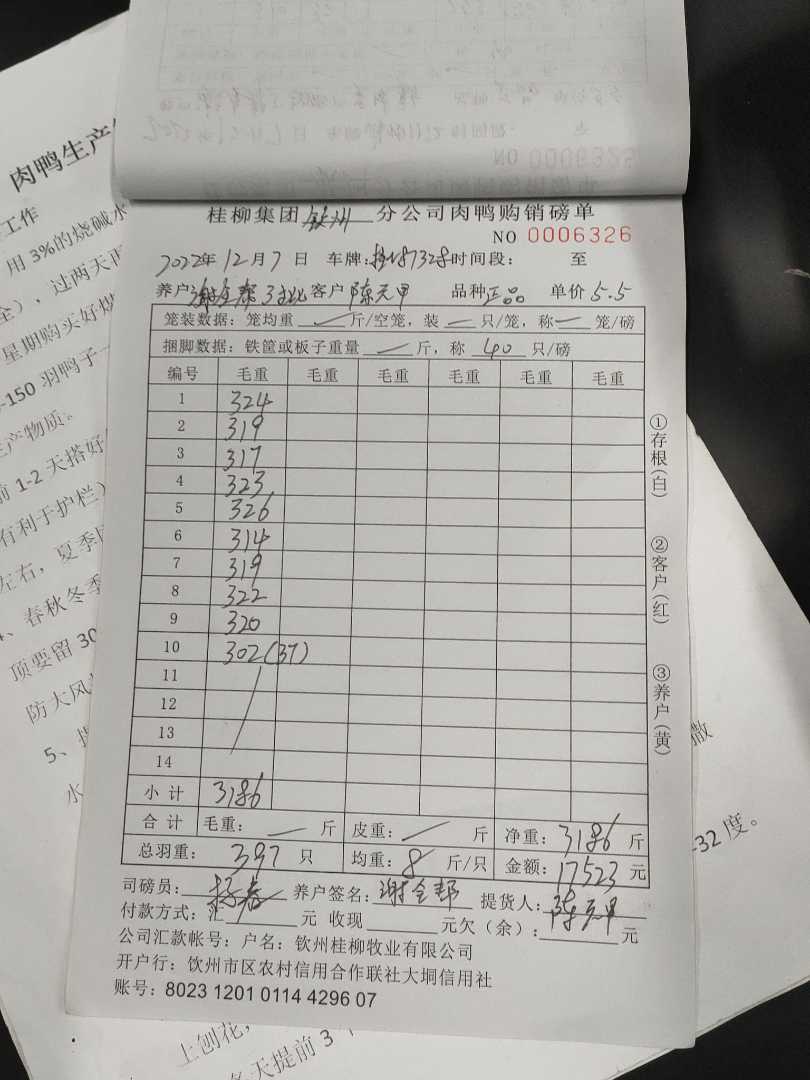 肉鸭生产
工作
用 3%的烧碱水
全）、过两天再
星期购买好
-150 羽鸭子一
生产物质。
前 1-2 天搭好
有利于护栏）
左右，夏季
、春秋冬季
顶要留 30
防大风
5、
水
NO 0006325
桂柳集团 钦州 分公司肉鸭购销磅单
NO 0006326
2022年12月7日 车牌: 87328 时间段: 至
养户: 谢全帮 客户 陈元甲 品种 正品 单价 5.5
笼装数据: 笼均重 — 斤/空笼, 装 — 只/笼, 称 — 笼/磅
捆脚数据: 铁筐或板子重量 — 斤, 称 40 只/磅
编号 毛重 毛重 毛重 毛重 毛重 毛重
1 324
2 319
3 317
4 323
5 326
6 314
7 319
8 322
9 320
10 302(37)
11
12
13
14
小计 3186
合计 毛重: — 斤 皮重: — 斤 净重: 3186 斤
总羽重: 397 只 均重: 8 斤/只 金额: 17523 元
司磅员: 杨春 养户签名: 谢全帮 提货人: 陈元甲
付款方式: 汇 元 收现 元欠（余）: 元
公司汇款帐号: 户名: 钦州桂柳牧业有限公司
开户行: 钦州市区农村信用合作联社大垌信用社
账号: 8023 1201 0114 4296 07
①存根(白)
②客户(红)
③养户(黄)
撒
-32 度。
上刨花,
冬天提前 3